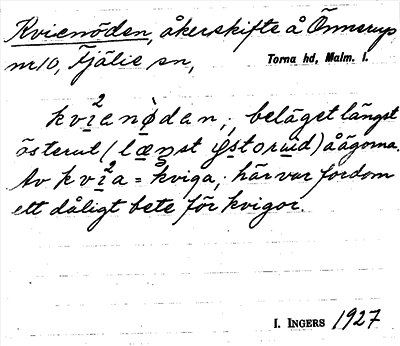 Kvienöden, åkerskifte å Önnerup
nr 10, Fjälie sn, Torna hd, Malm. l.
kvi²anø̀dan; beläget längst
österut (læŋst ystoruid) å ägorna.
Av kvi²a = kviga, här var fordom
ett dåligt bete för kvigor.
I. INGERS 1927